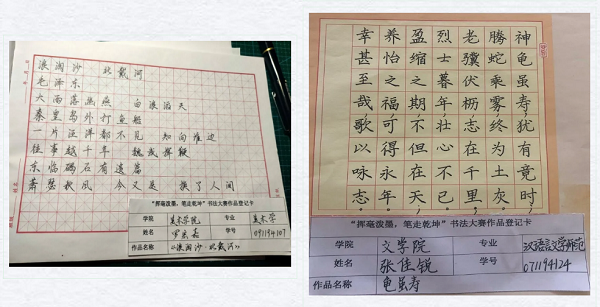 浪淘沙 北戴河
毛泽东
大雨落幽燕 白浪滔天
秦皇岛外打鱼船
一片汪洋都不见 知向谁边
往事越千年 魏武挥鞭
东临碣石有遗篇
萧瑟秋风 今又是 换了人间
“挥毫泼墨，笔走乾坤”书法大赛作品登记卡
学院 美术学院 专业 美术学
姓名 罗 嘉 学号 091194107
作品名称 《浪淘沙·北戴河》
神龟虽寿犹有竟时
腾蛇乘雾终为土灰
老骥伏枥志在千里
烈士暮年壮心不已
盈缩之期不但在天
养怡之福可得永年
幸甚至哉歌以咏志
“挥毫泼墨，笔走乾坤”书法大赛作品登记卡
学院 文学院 专业 汉语言文学师范
姓名 张佳锐 学号 071194124
作品名称 龟虽寿